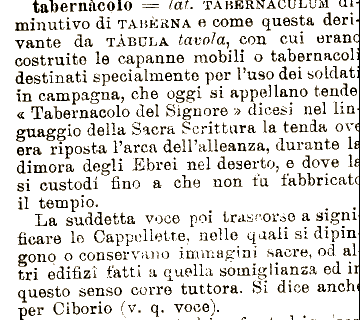 tabernàcolo = lat. TABERNACULUM di-
minutivo di TABÈRNA e come questa deri-
vante da TÀBULA tavola, con cui erano
costruite le capanne mobili o tabernacoli
destinati specialmente per l'uso dei soldati
in campagna, che oggi si appellano tende
« Tabernacolo del Signore » dicesi nel lin-
guaggio della Sacra Scrittura la tenda ove
era riposta l'arca dell'alleanza, durante la
dimora degli Ebrei nel deserto, e dove la
si custodì fino a che non fu fabbricato
il tempio.
La suddetta voce poi trascorse a signi-
ficare le Cappellette, nelle quali si dipin-
gono o conservano immagini sacre, od al-
tri edifizi fatti a quella somiglianza ed in
questo senso corre tuttora. Si dice anche
per Ciborio (v. q. voce).